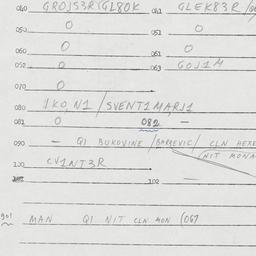 040 GROJS3R/GL80K 041 GLEK83R/
050 0 051 0
060 0 061 0
0 063 GOJ1M
070 0
080 1KO,N1 / SVENT1MAR1J1
081 0 082 —
090 — Q1 BUKOVINE / / CLN HEXE
(NIT MONA
100 CV1NT3R
102 —
901 MAN Q1 NIT CLN MON (067